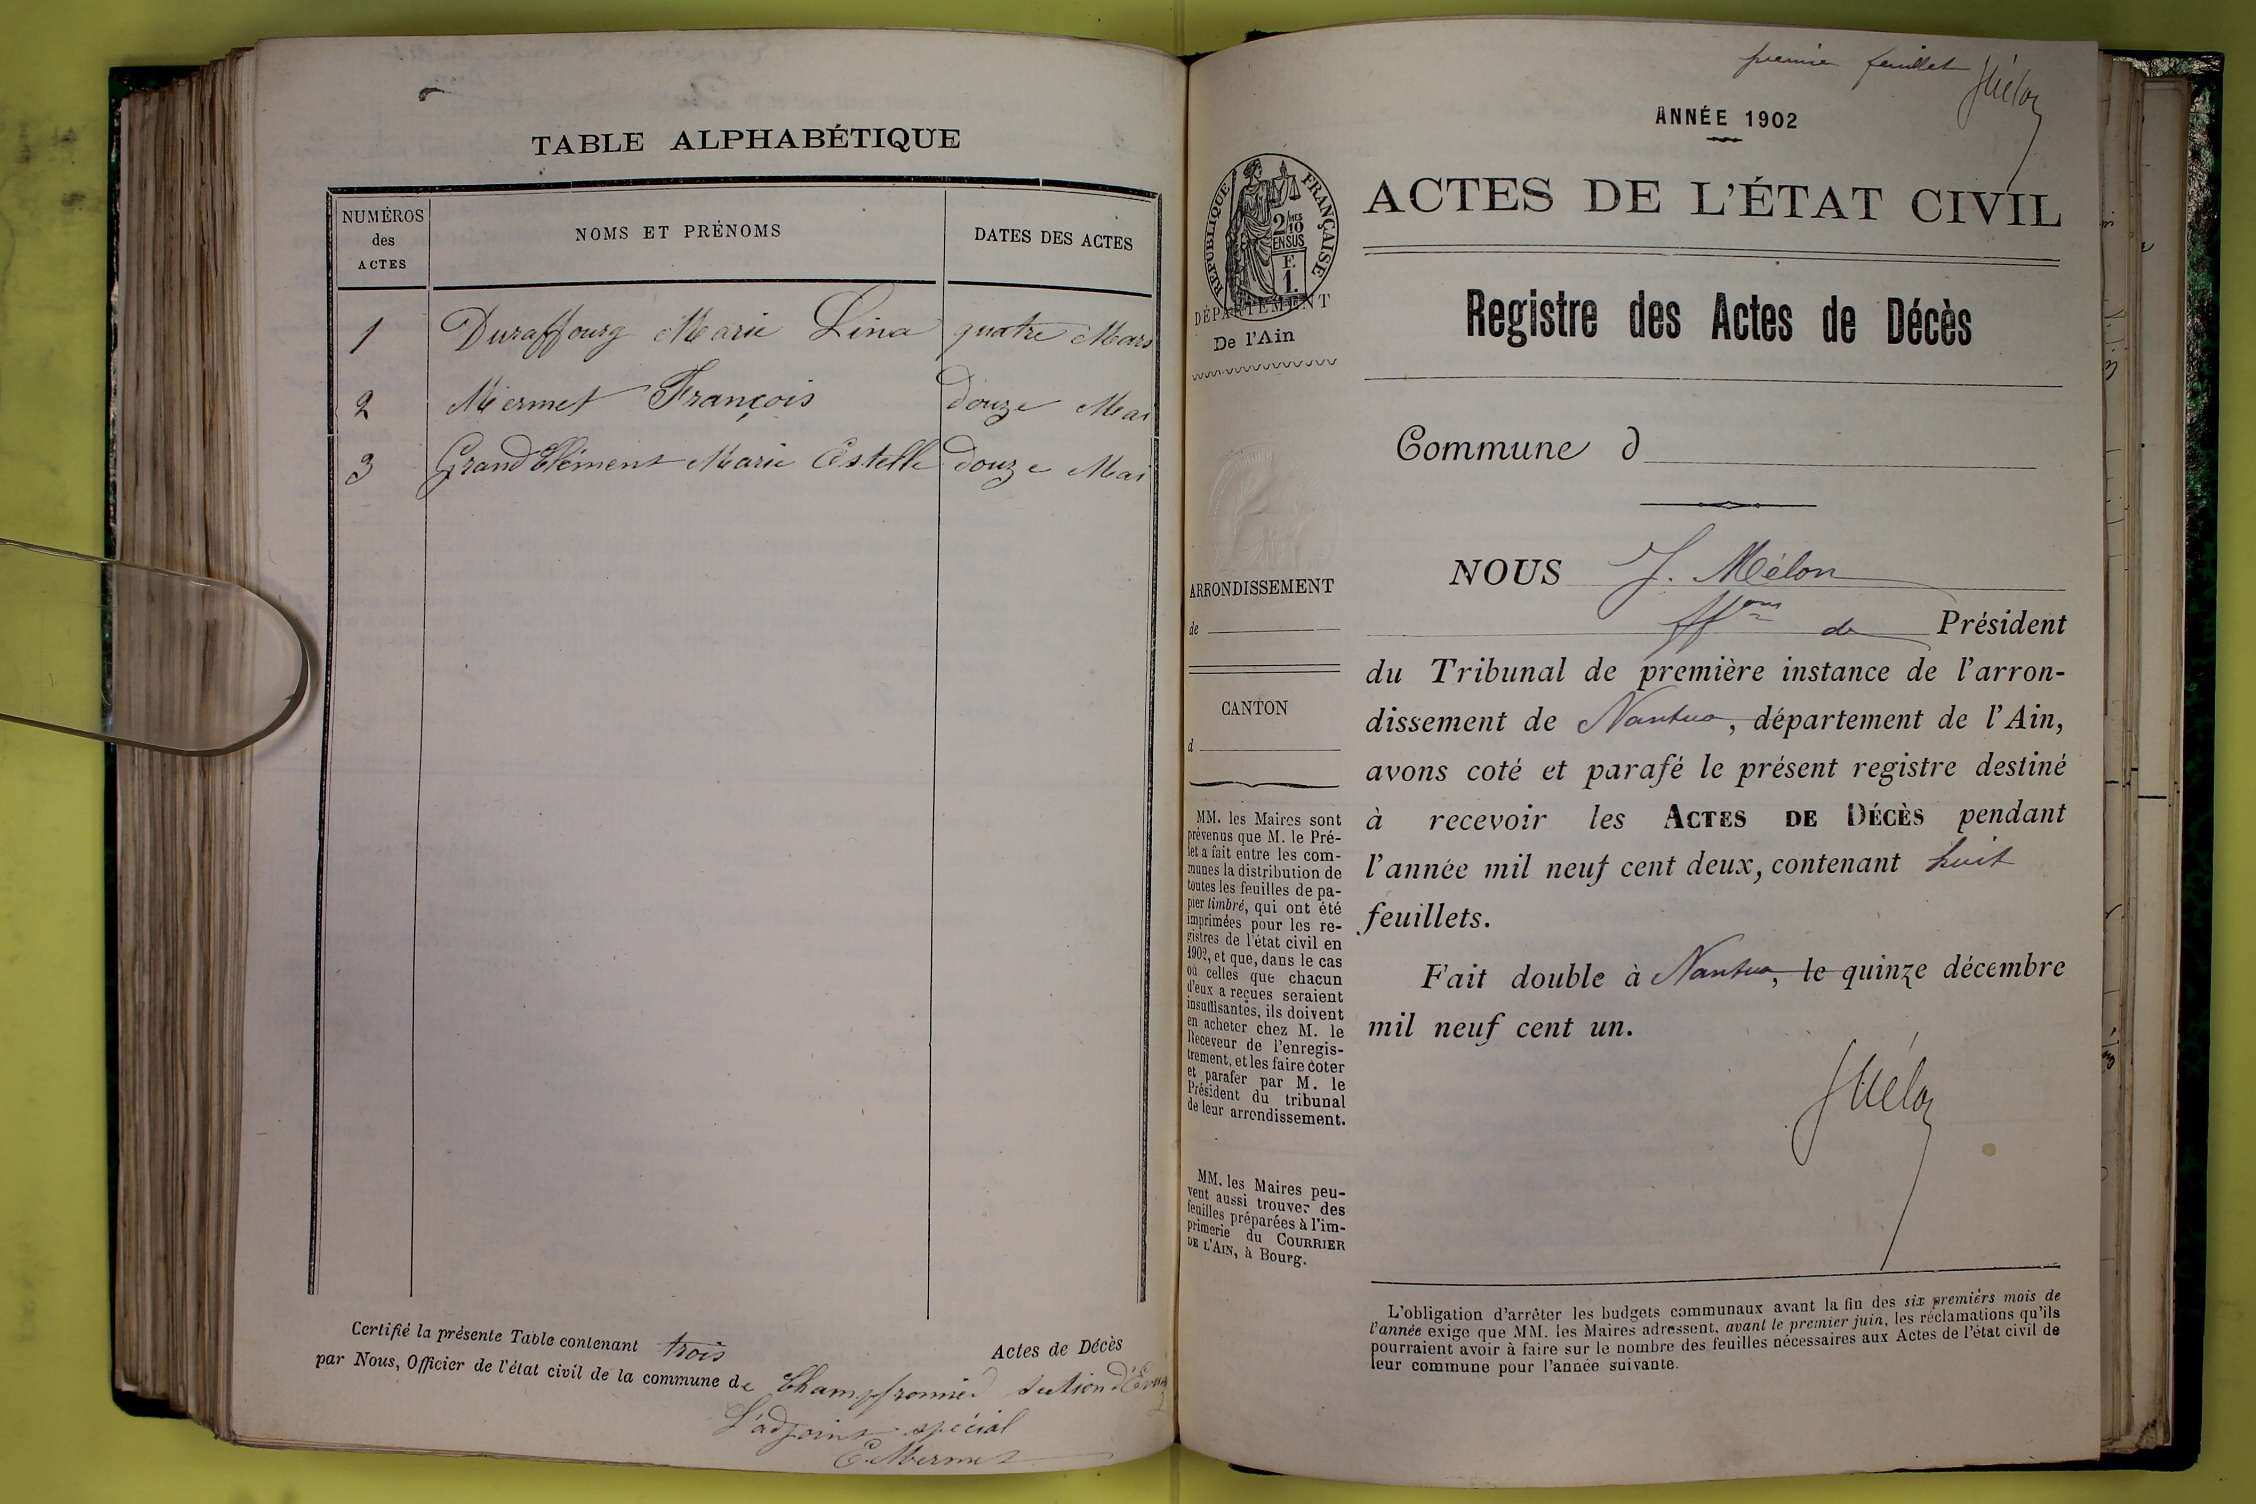 TABLE ALPHABÉTIQUE
NUMÉROS
des
ACTES
NOMS ET PRÉNOMS
DATES DES ACTES
1 Duraffourg Marie Lina quatre Mars
2 Mermet François douze Mai
3 Grand Clément Marie Estelle douze Mai
Certifié la présente Table contenant trois Actes de Décès
par Nous, Officier de l'état civil de la commune de Champfromier section d'
L'adjoint spécial
E. Mermet
premier feuillet JMélon
ANNÉE 1902
ACTES DE L'ÉTAT CIVIL
RÉPUBLIQUE FRANÇAISE
2/10
EN SUS
F.
1.
DÉPARTEMENT
De l'Ain
Registre des Actes de Décès
Commune d
ARRONDISSEMENT
de
CANTON
d
MM. les Maires sont
prévenus que M. le Pré-
fet a fait entre les com-
munes la distribution de
toutes les feuilles de pa-
pier timbré, qui ont été
imprimées pour les re-
gistres de l'état civil en
1902, et que, dans le cas
où celles que chacun
d'eux a reçues seraient
insuffisantes, ils doivent
en acheter chez M. le
Receveur de l'enregis-
trement, et les faire coter
et parafer par M. le
Président du tribunal
de leur arrondissement.
MM. les Maires peu-
vent aussi trouver des
feuilles préparées à l'im-
primerie du COURRIER
DE L'AIN, à Bourg.
NOUS J. Mélon
ff.ons de Président
du Tribunal de première instance de l'arron-
dissement de Nantua, département de l'Ain,
avons coté et parafé le présent registre destiné
à recevoir les ACTES DE DÉCÈS pendant
l'année mil neuf cent deux, contenant huit
feuillets.
Fait double à Nantua, le quinze décembre
mil neuf cent un.
JMélon
L'obligation d'arrêter les budgets communaux avant la fin des six premiers mois de
l'année exige que MM. les Maires adressent, avant le premier juin, les réclamations qu'ils
pourraient avoir à faire sur le nombre des feuilles nécessaires aux Actes de l'état civil de
leur commune pour l'année suivante.